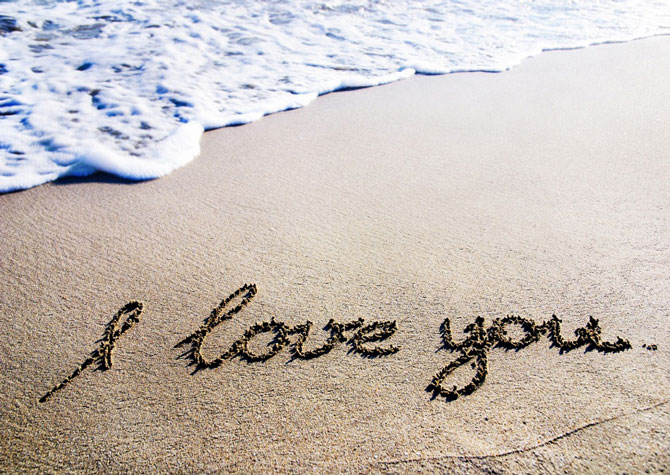 I love you..